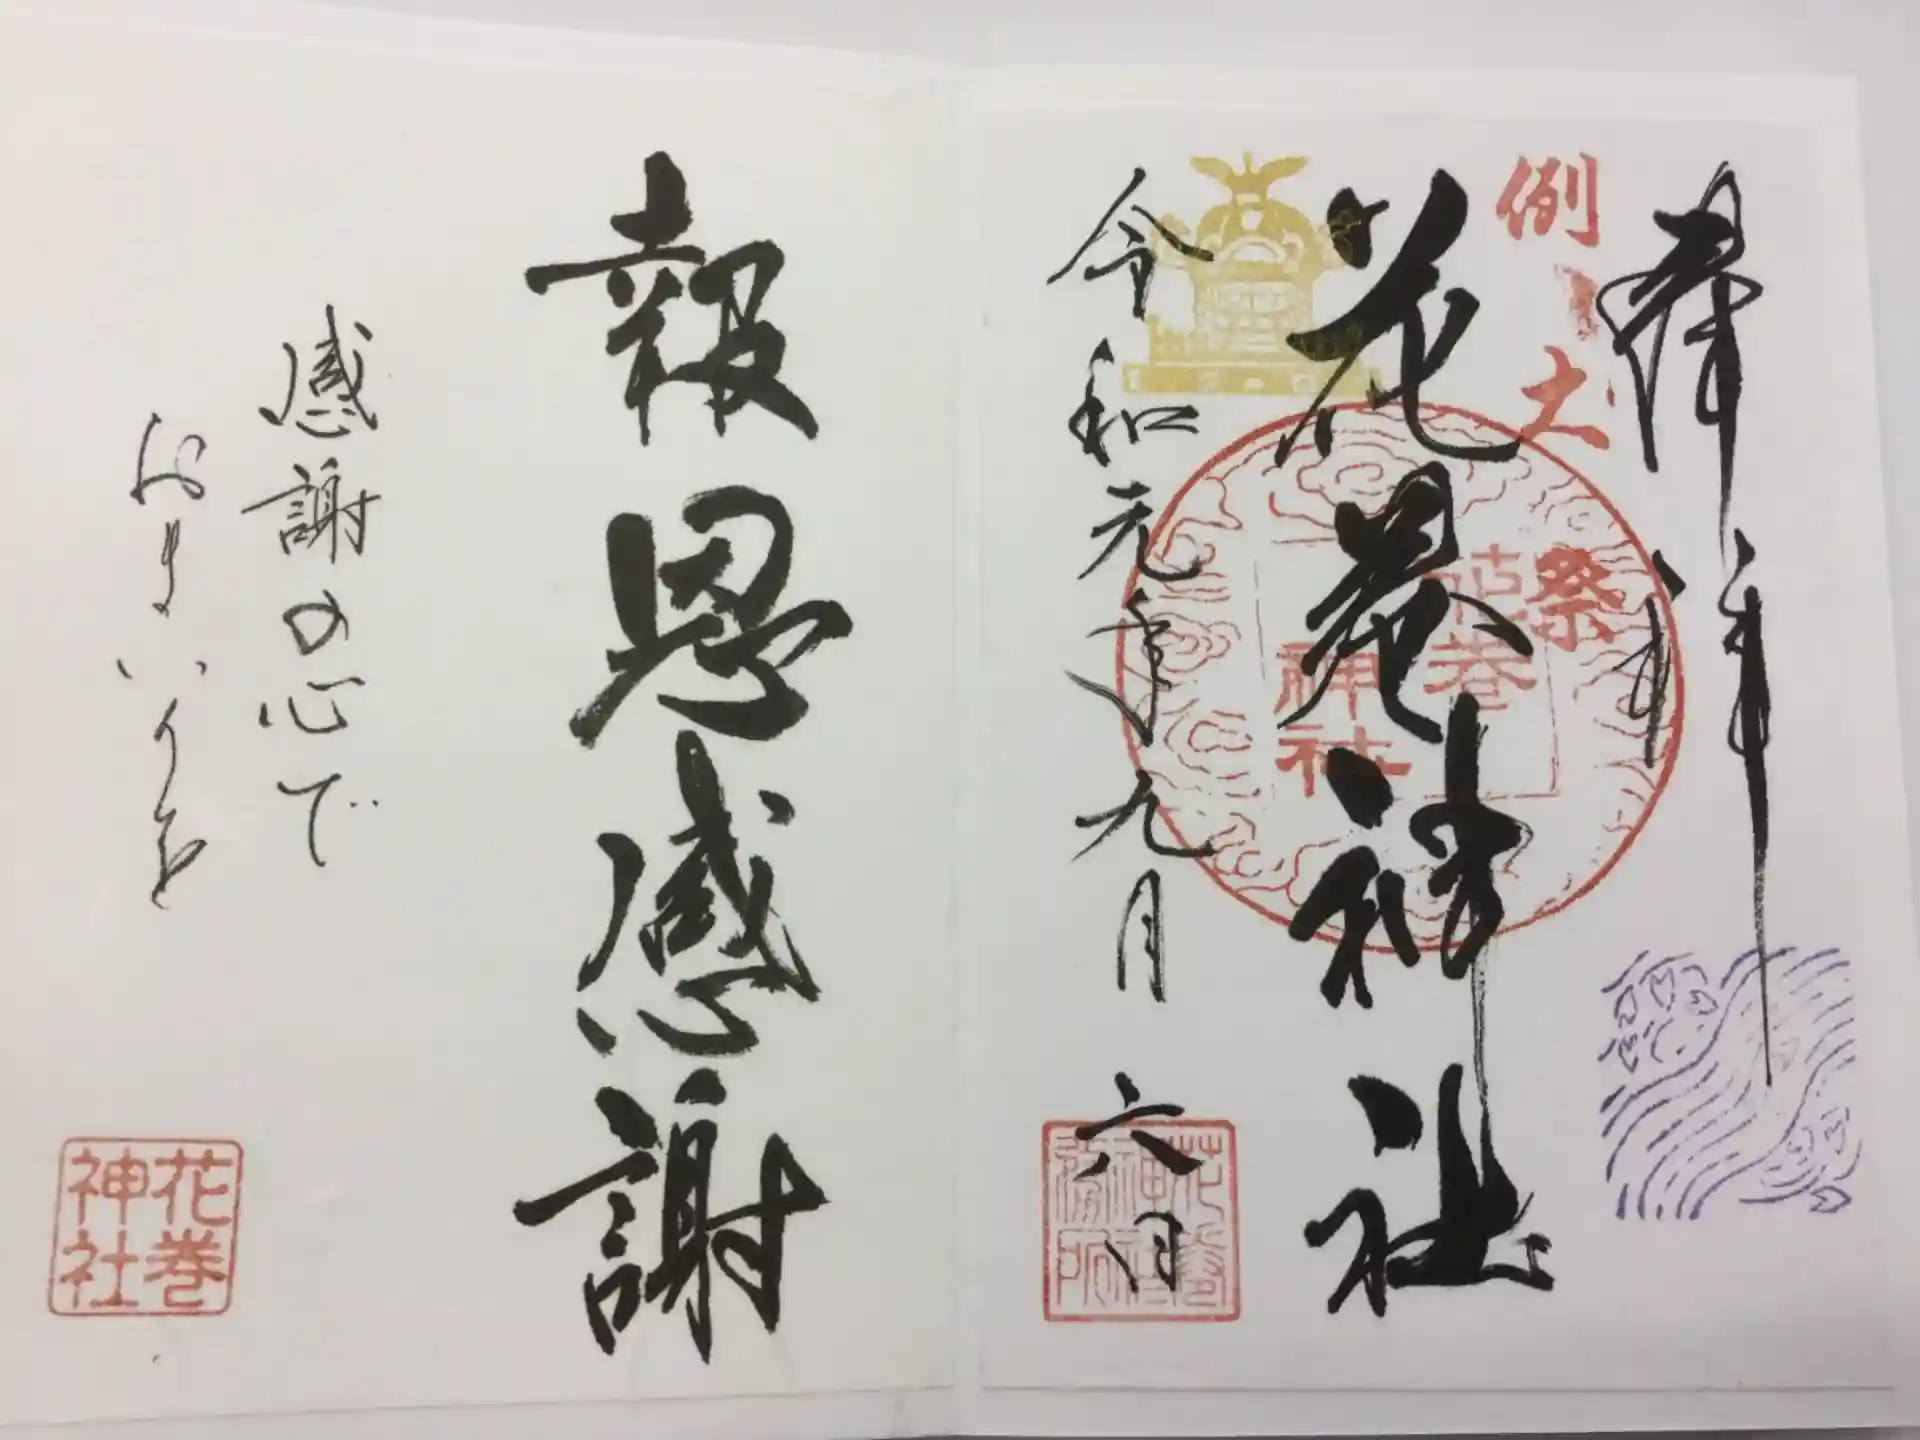 奉拝
例大祭
花巻神社
花巻神社
令和元年九月六日
花巻神社務所
報恩感謝
感謝の心で
おまいりを
花巻神社